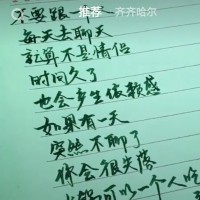 推荐 · 齐齐哈尔
不要跟一
每天去聊天
就算不是情侣
时间久了
也会产生依赖感
如果有一天
突然不聊了
你会很失落
可以一个人吃